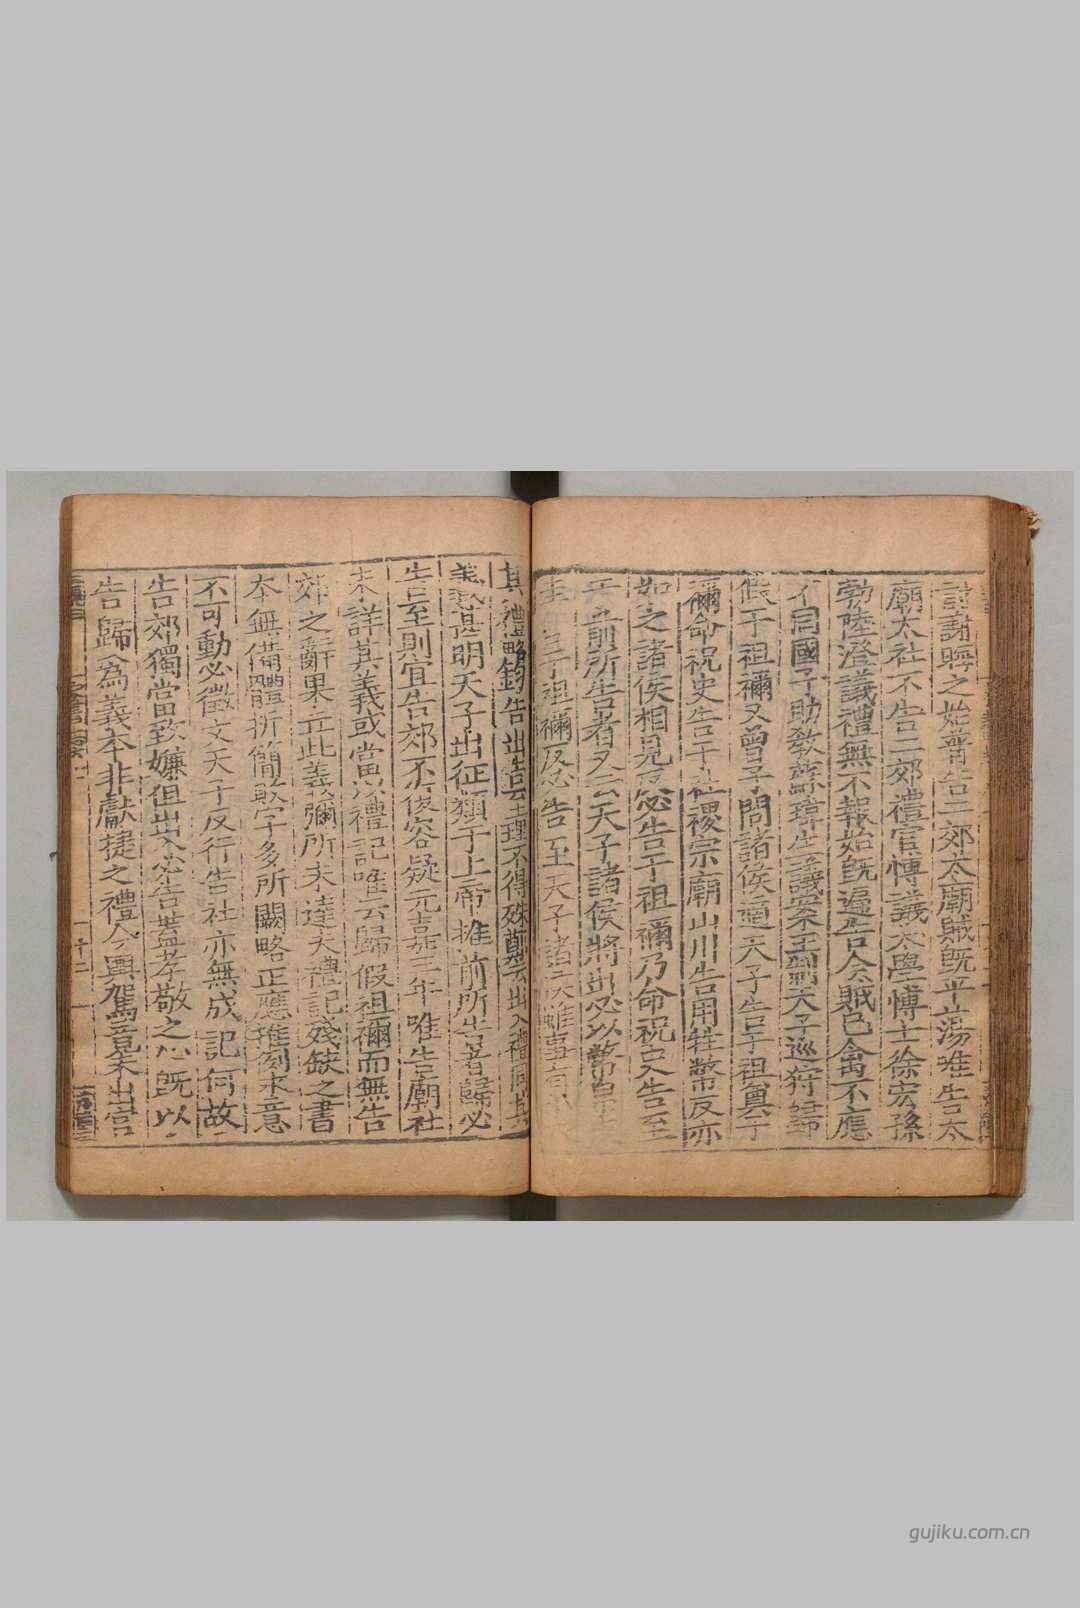 討謝晦之始普告二郊太廟賊既平蕩唯告太
廟太社不告二郊禮官博議太學博士徐宏孫
勃陸澄議禮無不報始既遍告今賊已禽不應
不同國子助教蘇瑋生議案王制天子巡狩歸
假于祖禰又曾子問諸侯適天子告于祖奠于
禰命祝史告于社稷宗廟山川告用牲幣反亦
如之諸侯相見反必告于祖禰乃命祝史告至
于前所告者又云天子諸侯將出必以幣帛
告于祖禰反必告至天子諸侯雖事有
其禮略鈞告出告至理不得殊鄭云出入禮同其
義甚明天子出征類于上帝推前所告者歸必
告至則宜告郊不復容疑元嘉三年唯告廟社
未詳其義或當以禮記唯云歸假祖禰而無告
郊之辭果立此義彌所未達夫禮記殘缺之書
本無備體折簡敗字多所闕略正應推例求意
不可動必徵文天子反行告社亦無成記何故
告郊獨當致嫌但出入必告蓋孝敬之心既以
告歸為義本非獻捷之禮今輿駕竟未出宮
gujiku.com.cn